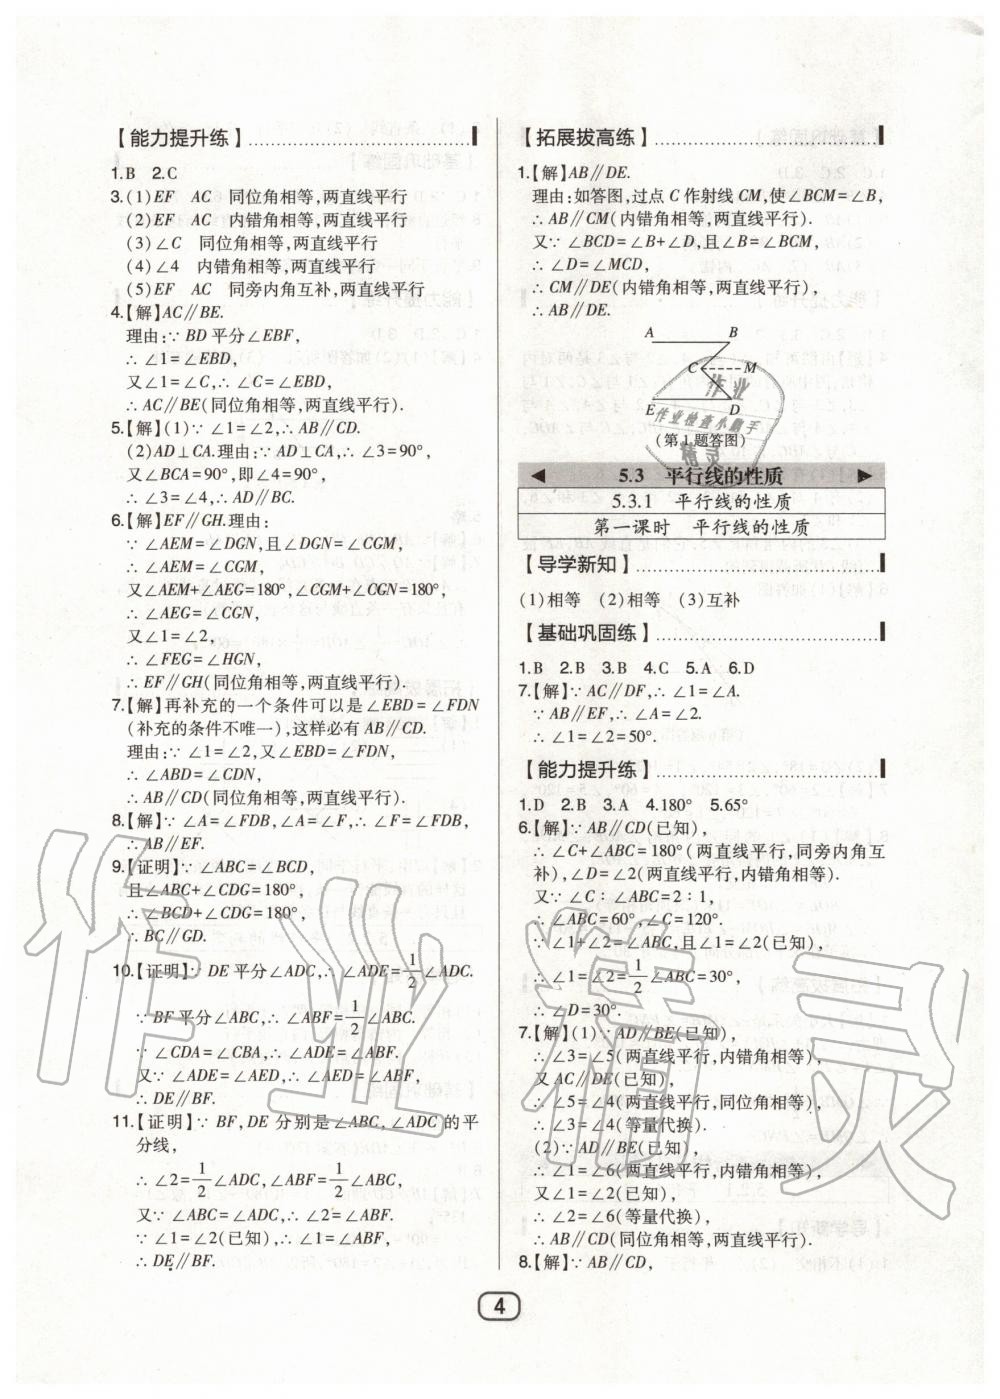 【能力提升练】
1.B　2.C
3.(1)EF　AC　同位角相等,两直线平行
(2)EF　AC　内错角相等,两直线平行
(3)∠C　同位角相等,两直线平行
(4)∠4　内错角相等,两直线平行
(5)EF　AC　同旁内角互补,两直线平行
4.【解】AC∥BE.
理由:∵BD平分∠EBF,
∴∠1=∠EBD,
又∠1=∠C,∴∠C=∠EBD,
∴AC∥BE(同位角相等,两直线平行).
5.【解】(1)∵∠1=∠2,∴AB∥CD.
(2)AD⊥CA.理由:∵AD⊥CA,∴∠3=90°,
又∠BCA=90°,即∠4=90°,
∴∠3=∠4,∴AD∥BC.
6.【解】EF∥GH.理由:
∵∠AEM=∠DGN,且∠DGN=∠CGM,
∴∠AEM=∠CGM,
又∠AEM+∠AEG=180°,∠CGM+∠CGN=180°,
∴∠AEG=∠CGN,
又∠1=∠2,
∴∠FEG=∠HGN,
∴EF∥GH(同位角相等,两直线平行).
7.【解】再补充的一个条件可以是∠EBD=∠FDN
(补充的条件不唯一),这样必有AB∥CD.
理由:∵∠1=∠2,又∠EBD=∠FDN,
∴∠ABD=∠CDN,
∴AB∥CD(同位角相等,两直线平行).
8.【解】∵∠A=∠FDB,∠A=∠F,∴∠F=∠FDB,
∴AB∥EF.
9.【证明】∵∠ABC=∠BCD,
且∠ABC+∠CDG=180°,
∴∠BCD+∠CDG=180°,
∴BC∥GD.
10.【证明】∵DE平分∠ADC,∴∠ADE=1/2∠ADC.
∵BF平分∠ABC,∴∠ABF=1/2∠ABC.
∵∠CDA=∠CBA,∴∠ADE=∠ABF.
又∵∠ADE=∠AED,∴∠AED=∠ABF,
∴DE∥BF.
11.【证明】∵BF,DE分别是∠ABC,∠ADC的平
分线,
∴∠2=1/2∠ADC,∠ABF=1/2∠ABC,
又∵∠ABC=∠ADC,∴∠2=∠ABF.
∵∠1=∠2(已知),∴∠1=∠ABF,
∴DE∥BF.
【拓展拔高练】
1.【解】AB∥DE.
理由:如答图,过点C作射线CM,使∠BCM=∠B,
∴AB∥CM(内错角相等,两直线平行).
又∵∠BCD=∠B+∠D,且∠B=∠BCM,
∴∠D=∠MCD,
∴CM∥DE(内错角相等,两直线平行),
∴AB∥DE.
A　B
C　M
E　D
(第1题答图)
作业
作业检查小帮手
精灵
5.3　平行线的性质
5.3.1　平行线的性质
第一课时　平行线的性质
【导学新知】
(1)相等　(2)相等　(3)互补
【基础巩固练】
1.B　2.B　3.B　4.C　5.A　6.D
7.【解】∵AC∥DF,∴∠1=∠A.
∵AB∥EF,∴∠A=∠2.
∴∠1=∠2=50°.
【能力提升练】
1.D　2.B　3.A　4.180°　5.65°
6.【解】∵AB∥CD(已知),
∴∠C+∠ABC=180°(两直线平行,同旁内角互
补),∠D=∠2(两直线平行,内错角相等).
又∵∠C∶∠ABC=2∶1,
∴∠ABC=60°,∠C=120°.
∵∠1+∠2=∠ABC,且∠1=∠2(已知),
∴∠1=∠2=1/2∠ABC=30°,
∴∠D=30°.
7.【解】(1)∵AD∥BE(已知),
∴∠3=∠5(两直线平行,内错角相等),
又AC∥DE(已知),
∴∠5=∠4(两直线平行,同位角相等),
∴∠3=∠4(等量代换).
(2)∵AD∥BE(已知),
∴∠1=∠6(两直线平行,内错角相等),
又∠1=∠2(已知),
∴∠2=∠6(等量代换),
∴AB∥CD(同位角相等,两直线平行).
8.【解】∵AB∥CD,
4
作业精灵